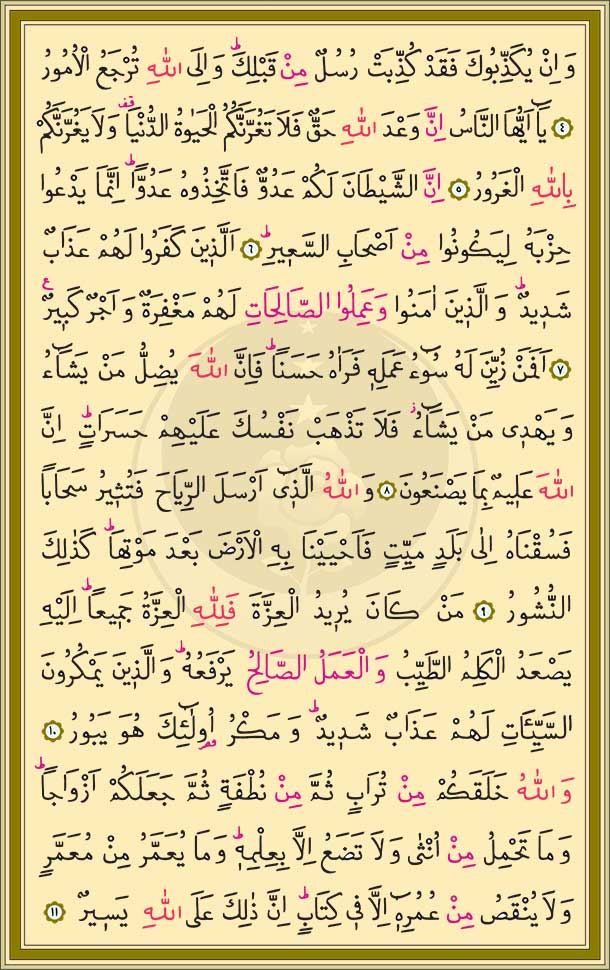 وَاِنْ يُكَذِّبُوكَ فَقَدْ كُذِّبَتْ رُسُلٌ مِنْ قَبْلِكَۜ وَاِلَى اللّٰهِ تُرْجَعُ الْاُمُورُ
﴿٤﴾ يَٓا اَيُّهَا النَّاسُ اِنَّ وَعْدَ اللّٰهِ حَقٌّ فَلَا تَغُرَّنَّكُمُ الْحَيٰوةُ الدُّنْيَا۠ وَلَا يَغُرَّنَّكُمْ
بِاللّٰهِ الْغَرُورُ ﴿٥﴾ اِنَّ الشَّيْطَانَ لَكُمْ عَدُوٌّ فَاتَّخِذُوهُ عَدُوًّاۜ اِنَّمَا يَدْعُوا
حِزْبَهُ لِيَكُونُوا مِنْ اَصْحَابِ السَّعٖيرِۜ ﴿٦﴾ اَلَّذٖينَ كَفَرُوا لَهُمْ عَذَابٌ
شَدٖيدٌۜ وَالَّذٖينَ اٰمَنُوا وَعَمِلُوا الصَّالِحَاتِ لَهُمْ مَغْفِرَةٌ وَاَجْرٌ كَبٖيرٌࣖ
﴿٧﴾ اَفَمَنْ زُيِّنَ لَهُ سُٓوءُ عَمَلِهٖ فَرَاٰهُ حَسَنًاۜ فَاِنَّ اللّٰهَ يُضِلُّ مَنْ يَشَٓاءُ
وَيَهْدٖى مَنْ يَشَٓاءُۘ فَلَا تَذْهَبْ نَفْسُكَ عَلَيْهِمْ حَسَرَاتٍۜ اِنَّ
اللّٰهَ عَلٖيمٌ بِمَا يَصْنَعُونَ ﴿٨﴾ وَاللّٰهُ الَّذٖٓى اَرْسَلَ الرِّيَاحَ فَتُثٖيرُ سَحَابًا
فَسُقْنَاهُ اِلٰى بَلَدٍ مَيِّتٍ فَاَحْيَيْنَا بِهِ الْاَرْضَ بَعْدَ مَوْتِهَاۜ كَذٰلِكَ
النُّشُورُ ﴿٩﴾ مَنْ كَانَ يُرٖيدُ الْعِزَّةَ فَلِلّٰهِ الْعِزَّةُ جَمٖيعًاۜ اِلَيْهِ
يَصْعَدُ الْكَلِمُ الطَّيِّبُ وَالْعَمَلُ الصَّالِحُ يَرْفَعُهُۜ وَالَّذٖينَ يَمْكُرُونَ
السَّيِّـَٔاتِ لَهُمْ عَذَابٌ شَدٖيدٌۜ وَمَكْرُ اُو۬لٰٓئِكَ هُوَ يَبُورُ ﴿١٠﴾
وَاللّٰهُ خَلَقَكُمْ مِنْ تُرَابٍ ثُمَّ مِنْ نُطْفَةٍ ثُمَّ جَعَلَكُمْ اَزْوَاجًاۜ
وَمَا تَحْمِلُ مِنْ اُنْثٰى وَلَا تَضَعُ اِلَّا بِعِلْمِهٖۜ وَمَا يُعَمَّرُ مِنْ مُعَمَّرٍ
وَلَا يُنْقَصُ مِنْ عُمُرِهٖٓ اِلَّا فٖى كِتَابٍۜ اِنَّ ذٰلِكَ عَلَى اللّٰهِ يَسٖيرٌ ﴿١١﴾